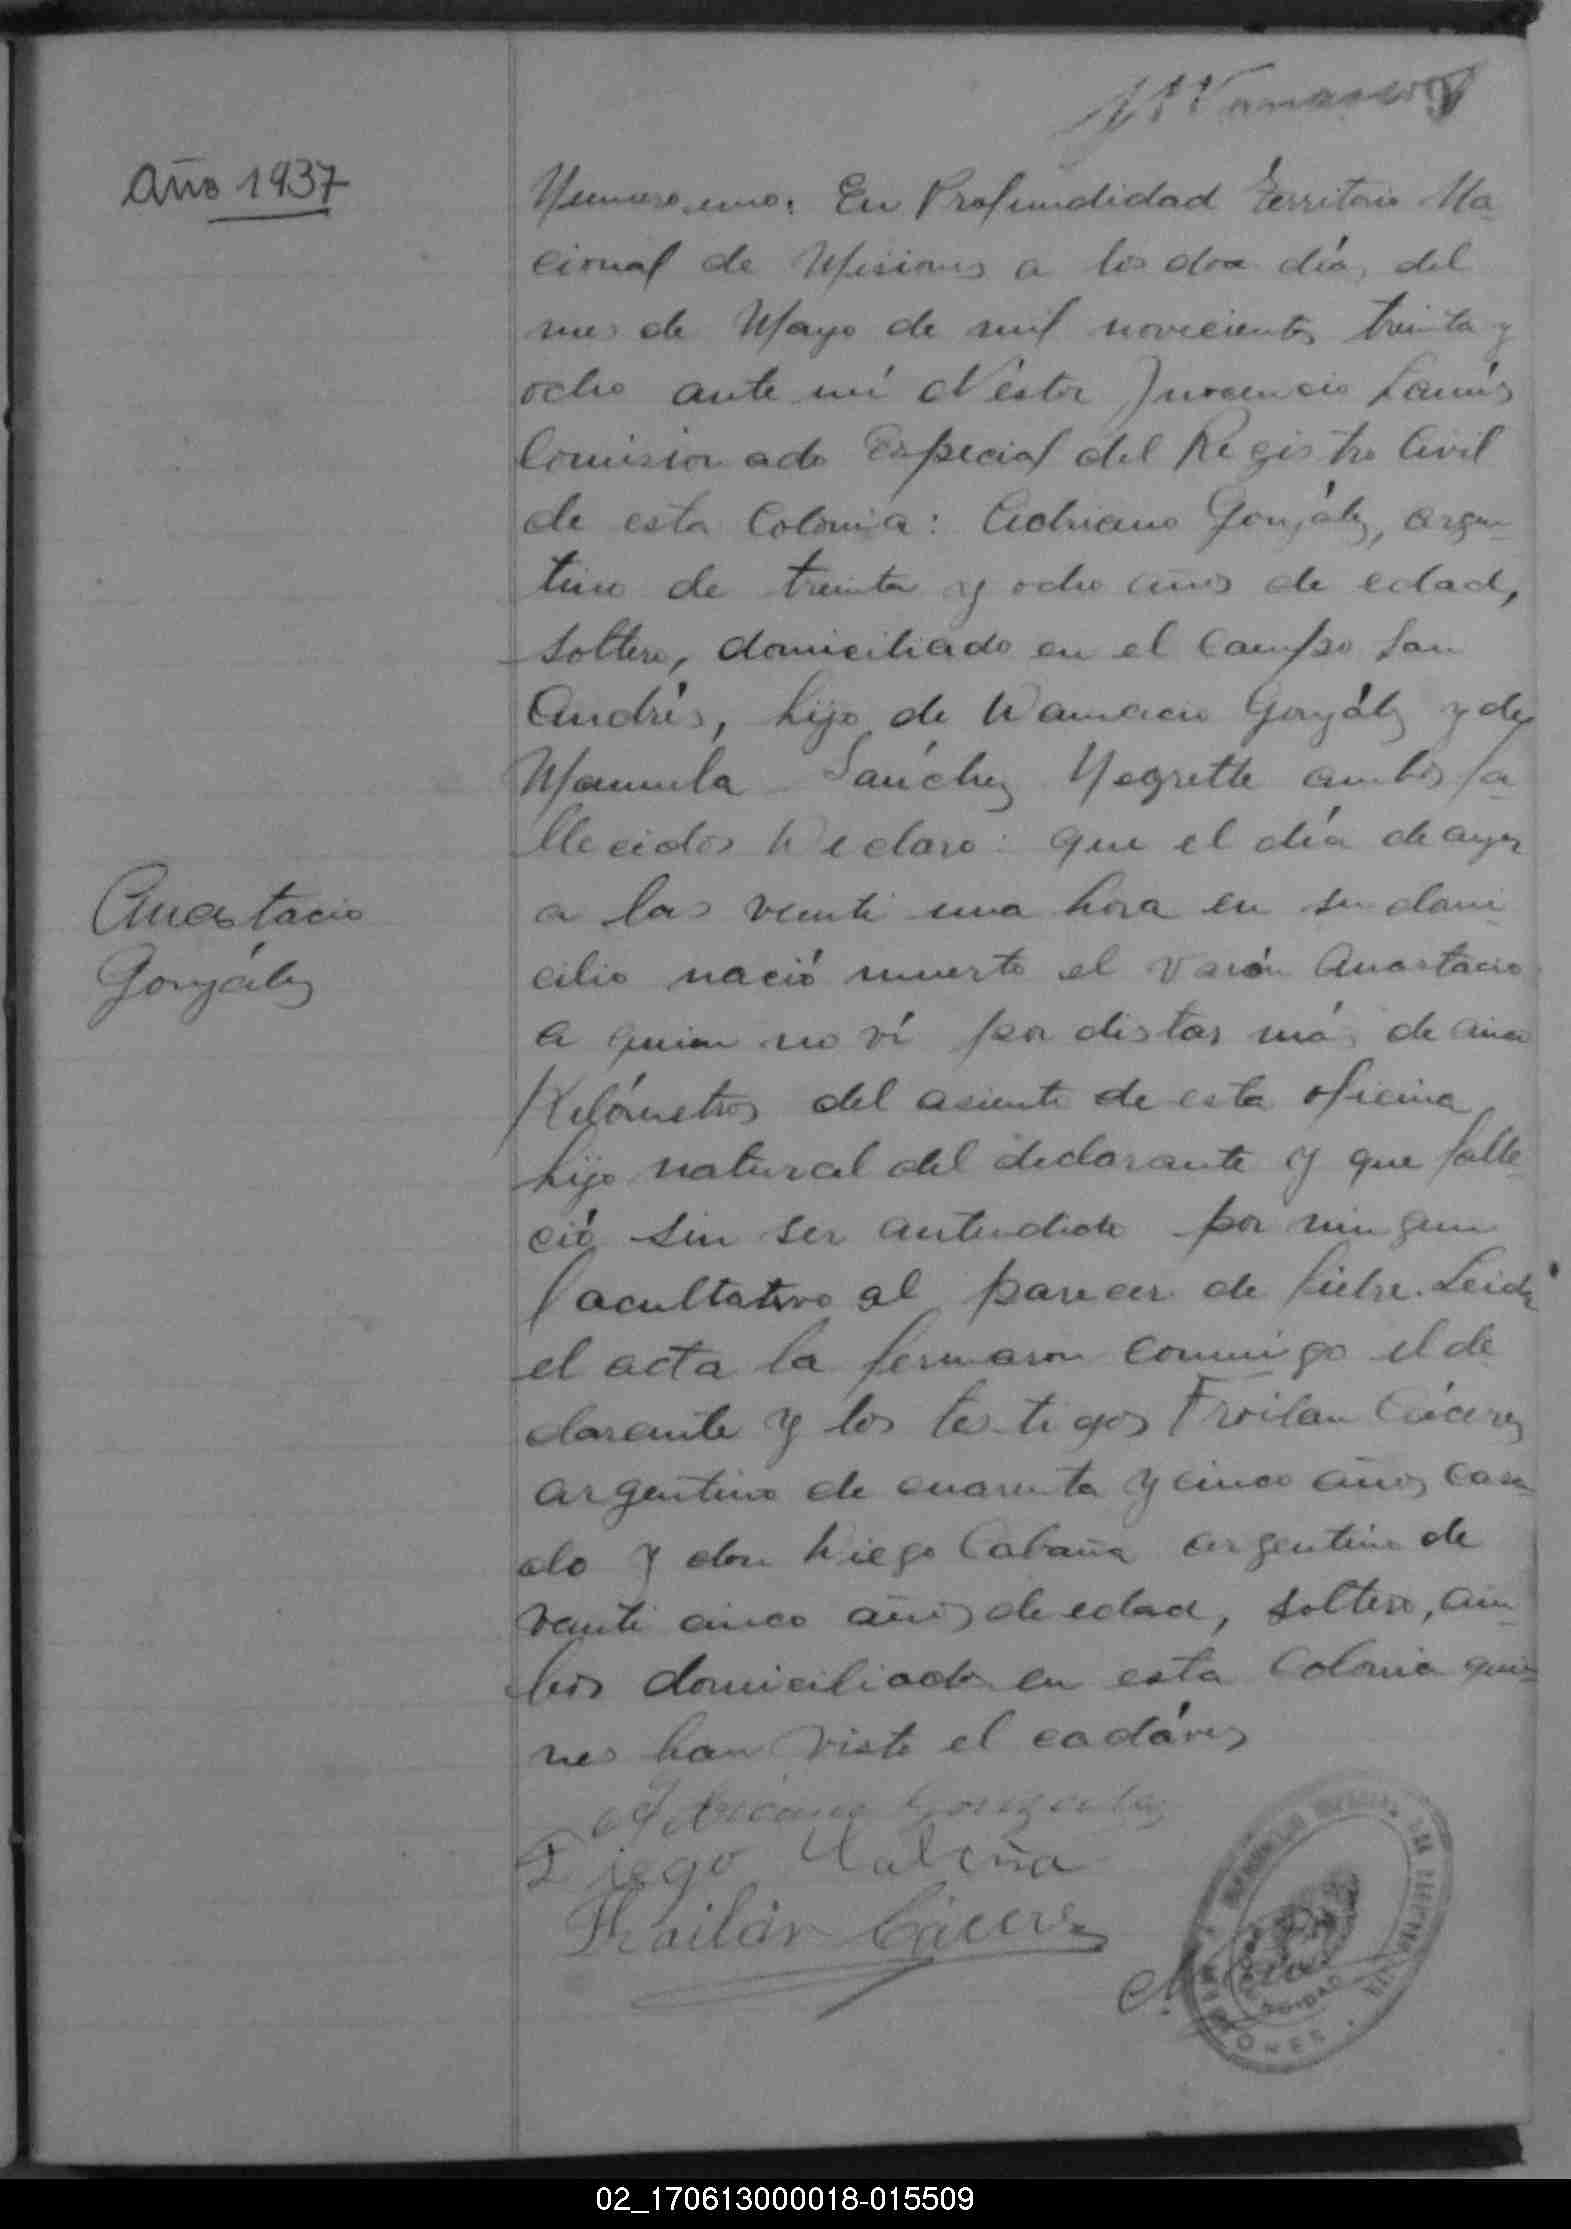 Año 1937
Numero uno: En Profundidad Territorio Na-
cional de Misiones a los dos días del
mes de Mayo de mil novecientos treinta y
ocho ante mí Néstor Inocencio Lanús
Comisionado Especial del Registro Civil
de esta Colonia: Adriano González, argen-
tino de treinta y ocho años de edad,
soltero, domiciliado en el Campo San
Andrés, hijo de Damacio González y de
Manuela Sánchez Negrette ambos fa-
llecidos Declaro: que el día de ayer
a las veinti una hora en su domi-
cilio nació muerto el varón Anastacio
a quien no ví por distar más de cinco
Kilómetros del asiento de esta oficina
hijo natural del declarante y que falle-
ció sin ser antendido por ningun
facultativo al parecer de fiebre. Leida
el acta la fermaron conmigo el de
clarante y los testigos Froilan Cáceres
argentino de cuarenta y cinco años casa
do y don Diego Cabaña argentino de
venti cinco años de edad, soltero, am-
bos domiciliados en esta Colonia quie-
nes han visto el cadáver
Anastacio
González
Adriano Gonzalez
Diego Cabaña
Froilán Cáceres
02_170613000018-015509